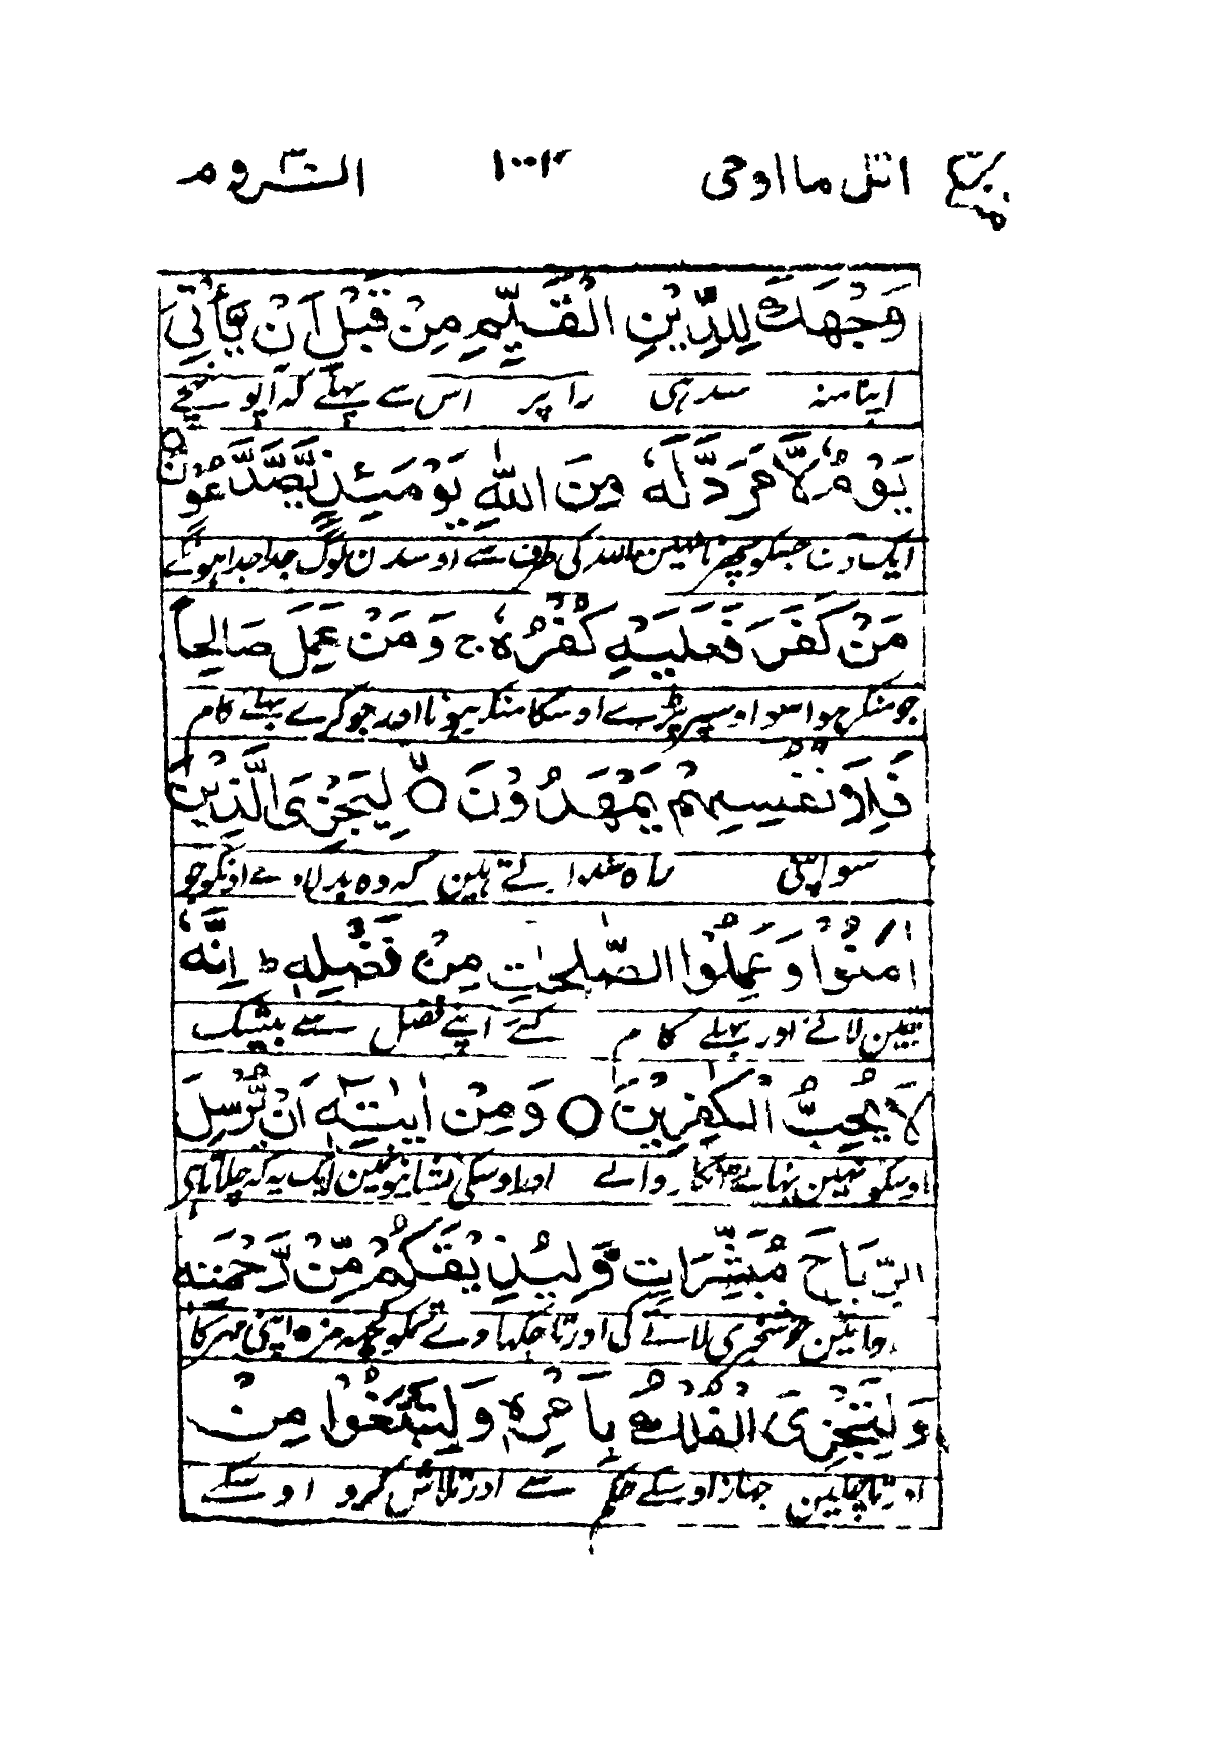 اتل ما اوحی ۱۰۰۲ الروم ۳۰
وَجْهَكَ لِلدِّيْنِ الْقَيِّمِ مِنْ قَبْلِ اَنْ يَّأْتِيَ
اپنا منہ سدہی راہ پر اس سے پہلے کہ آپہونچے
يَوْمٌ لَّا مَرَدَّ لَهٗ مِنَ اللّٰهِ يَوْمَئِذٍ يَّصَّدَّعُوْنَ
ایک دن جسکو پھرنا نہین اللہ کی طرف سے اوسدن لوگ جدا جدا ہونگے
مَنْ كَفَرَ فَعَلَيْهِ كُفْرُهٗ ج وَ مَنْ عَمِلَ صَالِحاً
جو منکر ہوا سو اوسپر پڑے اوسکا منکر ہونا اور جو کرے بہلے کام
فَلِاَنْفُسِهِمْ يَمْهَدُوْنَ لِيَجْزِيَ الَّذِيْنَ
سو اپنی راہ سنوارتے ہین کہ وہ بدلا دے اونکو جو
اٰمَنُوْا وَعَمِلُوا الصّٰلِحٰتِ مِنْ فَضْلِهٖ ط اِنَّهٗ
یقین لائے اور بہلے کام کئے اپنے فضل سے بیشک
لَا يُحِبُّ الْكٰفِرِيْنَ وَمِنْ اٰيٰتِهٖٓ اَنْ يُّرْسِلَ
اوسکو نہین بہاتے انکار والے اور اوسکی نشانیونمین ایک یہ کہ چلاتا ہی
الرِّيَاحَ مُبَشِّرَاتٍ وَّ لِيُذِيْقَكُمْ مِّنْ رَّحْمَتِهٖ
بائین خوشخبری لاتے کی اور تا چکہاوے تمکو کچھ مزہ اپنی مہر کا
وَلِتَجْرِيَ الْفُلْكُ بِاَمْرِهٖ وَلِتَبْتَغُوْا مِنْ
اور تا چلین جہاز اوسکے حکم سے اور تلاش کرو اوسکے